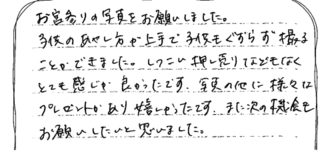 お宮参りの写真をお願いしました。
子供のあやし方が上手で子供もぐずらず撮る
ことができました。しつこい押し売りなどもなく
とても感じが良かったです。写真の他に様々な
プレゼントがあり嬉しかったです。また次の機会も
お願いしたいと思いました。